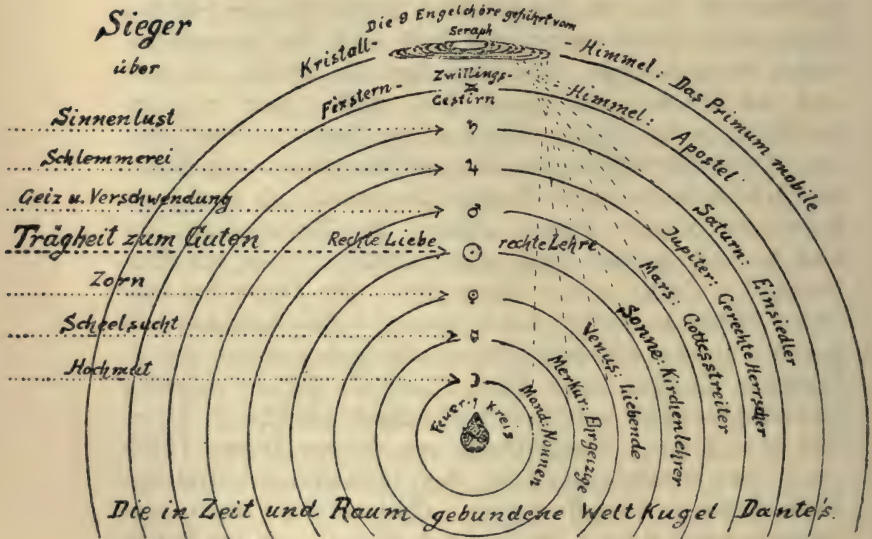 Sieger
über
Sinnenlust
Schlemmerei
Geiz u. Verschwendung
Trägheit zum Guten
Zorn
Scheelsucht
Hochmut
Die 9 Engelchöre geführt vom
Seraph
Kristall- - Himmel: Das Primum mobile
Zwillings-
Gestirn
Fixstern- - Himmel: Apostel
♄
Saturn: Einsiedler
♃
Jupiter: Gerechte Herrscher
♂
Mars: Gottesstreiter
Rechte Liebe ☉ rechte Lehre
Sonne: Kirchenlehrer
♀
Venus: Liebende
☿
Merkur: Ehrgeizige
☽
Mond: Nonnen
Feuer- Kreis
Die in Zeit und Raum gebundene Welt Kugel Dante's.